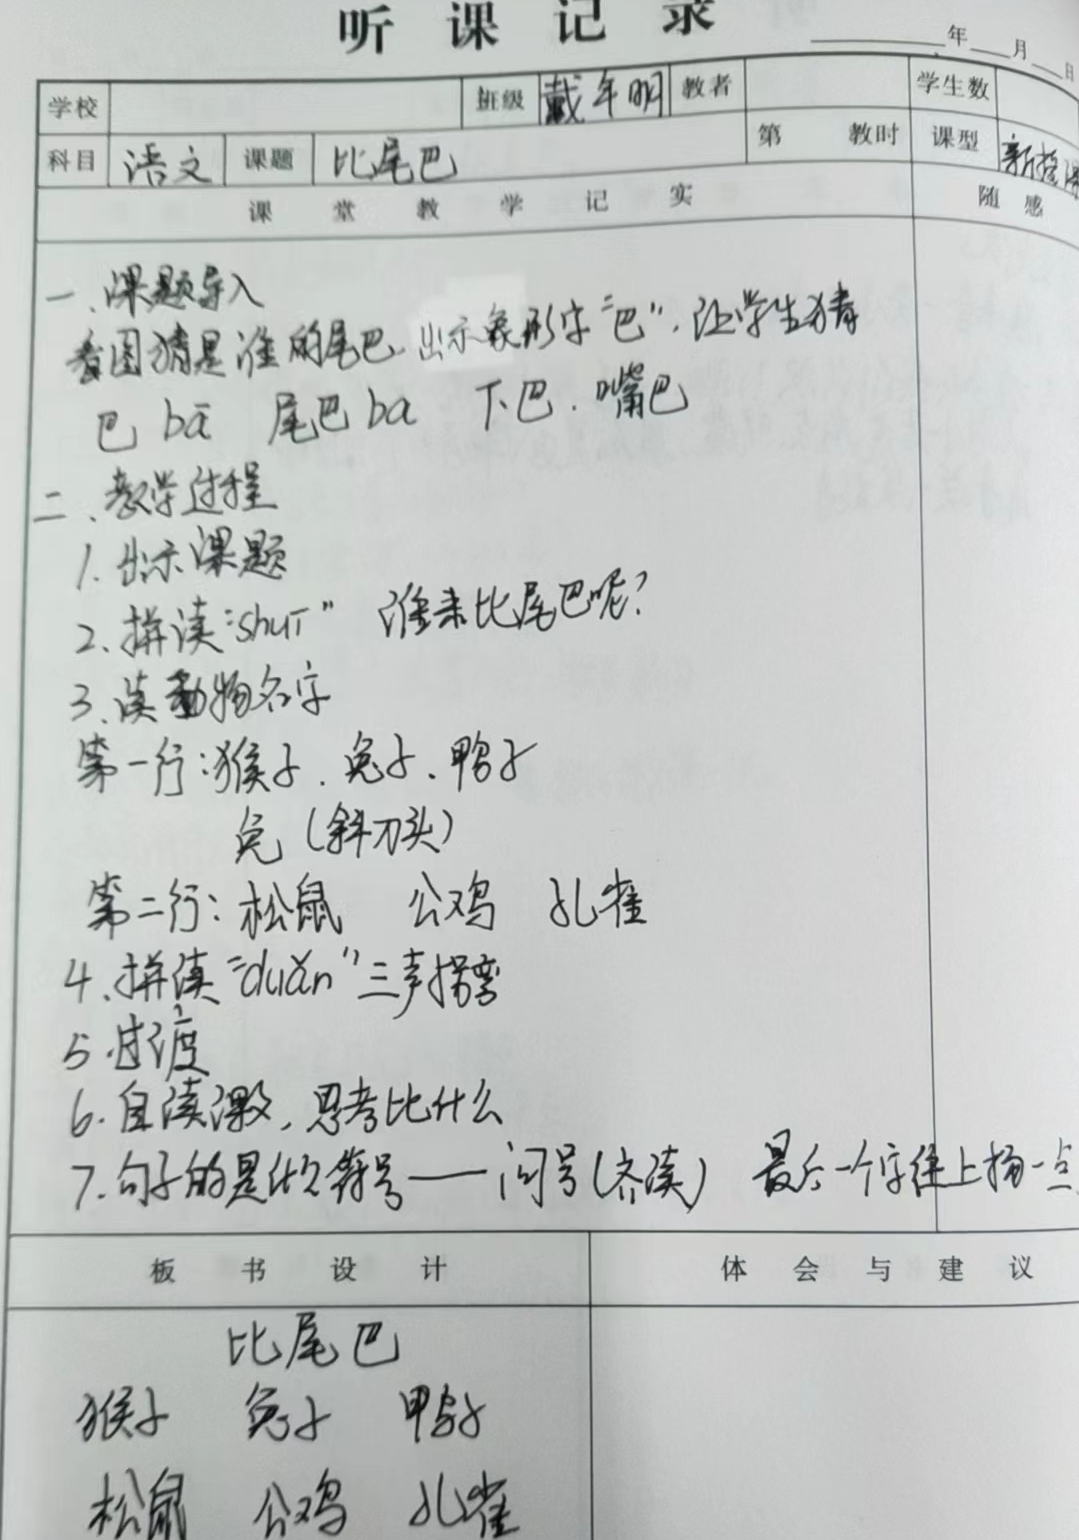 听课记录
年 月 日
学校 班级 戴年明 教者 学生数
科目 语文 课题 比尾巴 第 教时 课型 新授课
课堂教学记实 随感
一、课题导入
看图猜是谁的尾巴.出示象形字“巴”,让学生猜
巴 bā 尾巴 ba 下巴、嘴巴
二、教学过程
1.出示课题
2.拼读“shuí” 谁来比尾巴呢?
3.读动物名字
第一行:猴子、兔子、鸭子
兔(斜刀头)
第二行:松鼠 公鸡 孔雀
4.拼读“duǎn”三声拐弯
5.过渡
6.自读课文,思考比什么
7.句子的是什么符号——问号(齐读) 最后一个字往上扬一点
板书设计 体会与建议
比尾巴
猴子 兔子 鸭子
松鼠 公鸡 孔雀